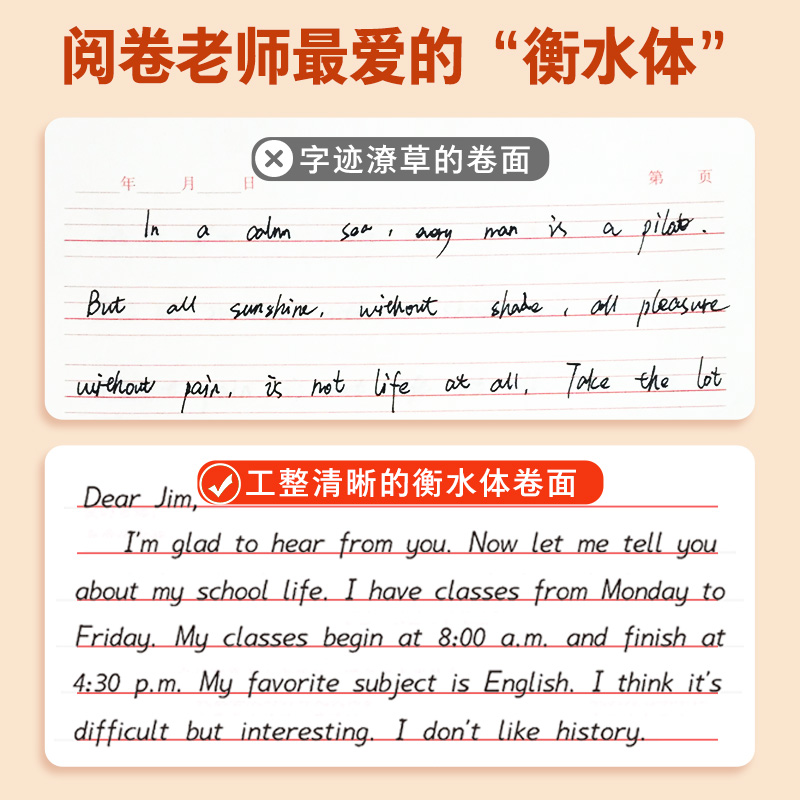 阅卷老师最爱的“衡水体”
字迹潦草的卷面
年 月 日
第 页
In a calm sea, every man is a pilot.
But all sunshine, without shade, all pleasure
without pain, is not life at all. Take the lot
工整清晰的衡水体卷面
Dear Jim,
I'm glad to hear from you. Now let me tell you
about my school life. I have classes from Monday to
Friday. My classes begin at 8:00 a.m. and finish at
4:30 p.m. My favorite subject is English. I think it's
difficult but interesting. I don't like history.